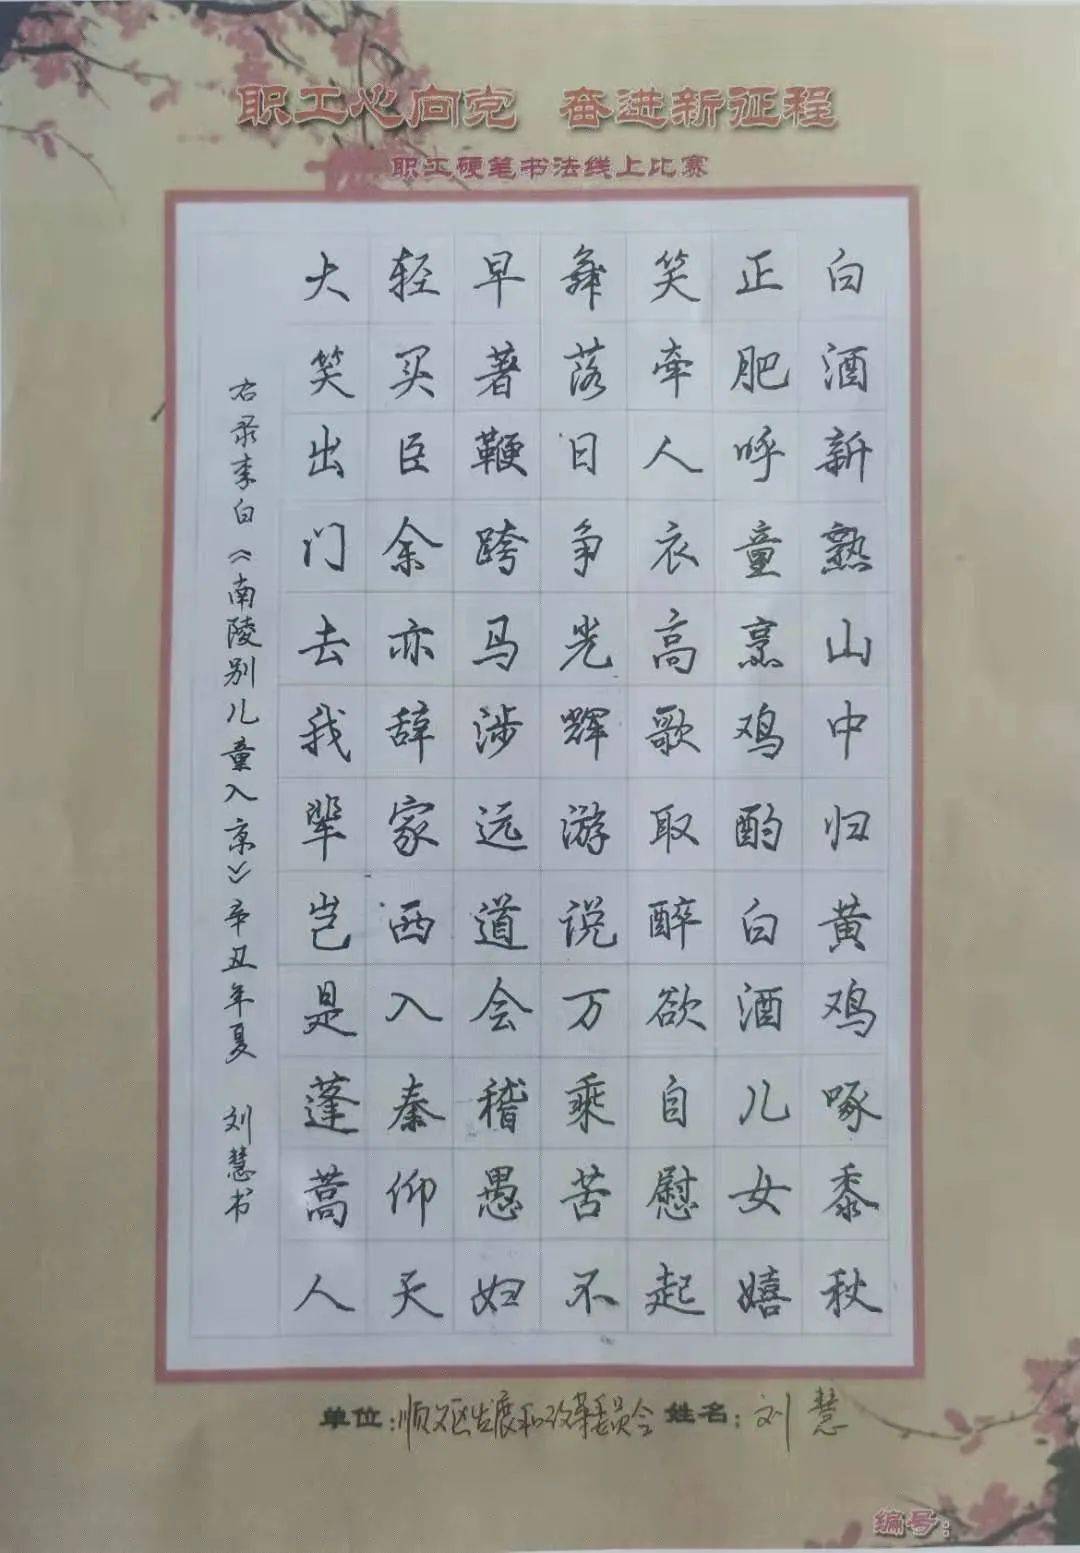 职工心向党 奋进新征程
职工硬笔书法线上比赛
白酒新熟山中归黄鸡啄黍秋
正肥呼童烹鸡酌白酒儿女嬉
笑牵人衣高歌取醉欲自慰起
舞落日争光辉游说万乘苦不
早著鞭跨马涉远道会稽愚妇
轻买臣余亦辞家西入秦仰天
大笑出门去我辈岂是蓬蒿人
右录李白《南陵别儿童入京》辛丑年夏 刘慧书
单位:顺义区发展和改革委员会 姓名:刘慧
编号: